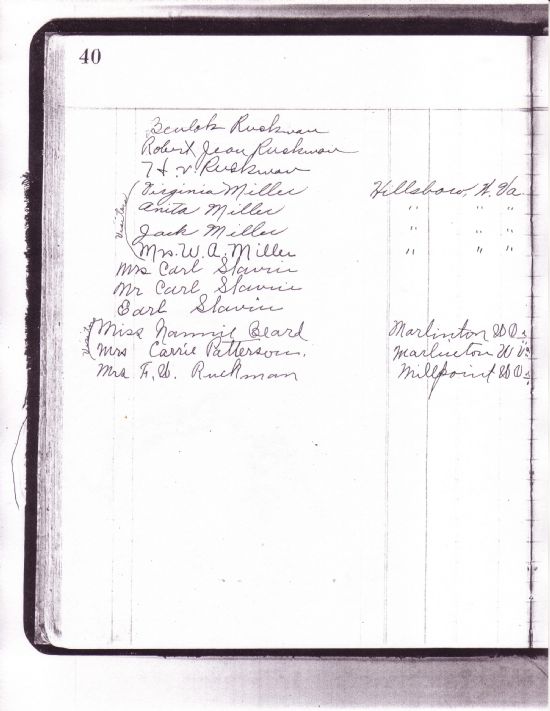 40
Beulah Ruckman
Robert Jean Ruckman
F. V. Ruckman
Virginia Miller Hillsboro, W. Va
Anita Miller " " "
Jack Miller " " "
Mrs. W. A. Miller " " "
Mrs Carl Slavin
Mr Carl Slavin
Earl Slavin
Miss Nannie Beard Marlinton W Va
Mrs Carrie Patterson. Marlinton W Va
Mrs. F. W. Ruckman Millpoint W Va
Visitors
Visitors